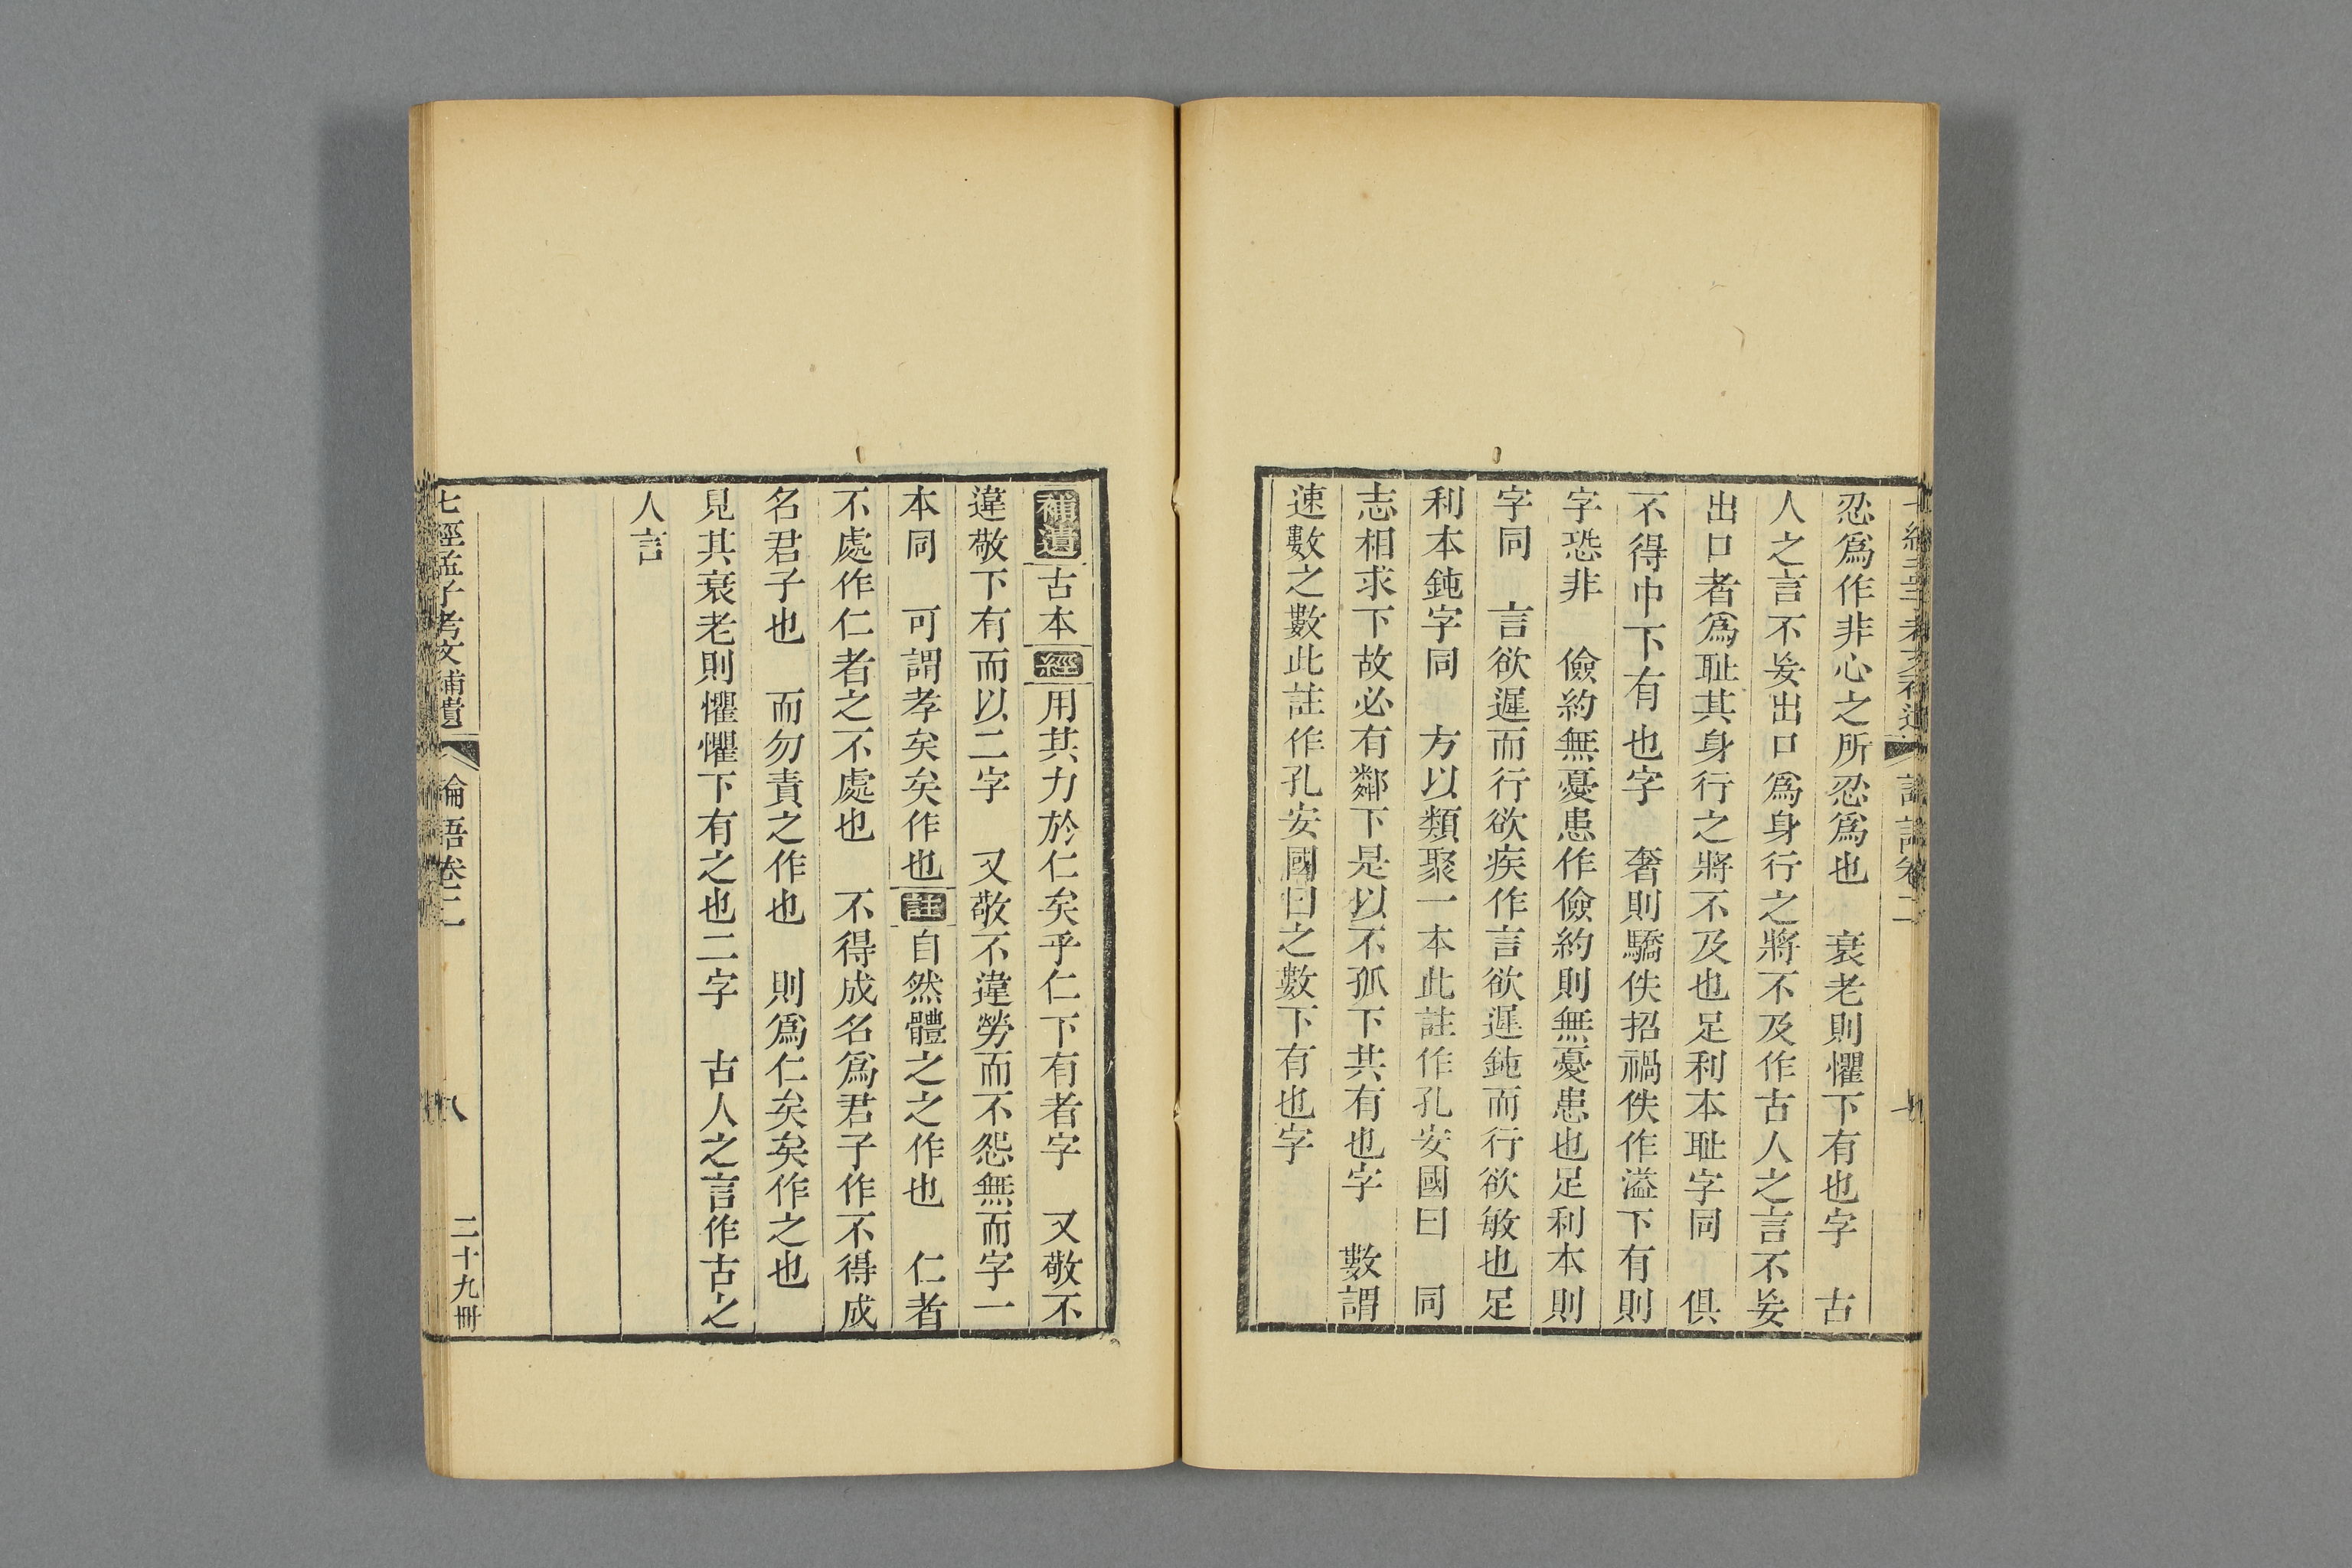 忍爲作非心之所忍爲也　衰老則懼下有也字　古
人之言不妄出口爲身行之將不及作古人之言不妄
出口者爲耻其身行之將不及也足利本耻字同　俱
不得中下有也字　奢則驕佚招禍佚作溢下有則
字恐非　儉約無憂患作儉約則無憂患也足利本則
字同　言欲遲而行欲疾作言欲遲鈍而行欲敏也足
利本鈍字同　方以類聚一本此註作孔安國曰　同
志相求下故必有鄰下是以不孤下共有也字　數謂
速數之數此註作孔安國曰之數下有也字
補遺古本經用其力於仁矣乎仁下有者字　又敬不
違敬下有而以二字　又敬不違勞而不怨無而字一
本同　可謂孝矣矣作也註自然體之之作也　仁者
不處作仁者之不處也　不得成名爲君子作不得成
名君子也　而勿責之作也　則爲仁矣矣作之也
見其衰老則懼懼下有之也二字　古人之言作古之
人言
七經孟子考文補遺　論語卷二　八　二十九冊